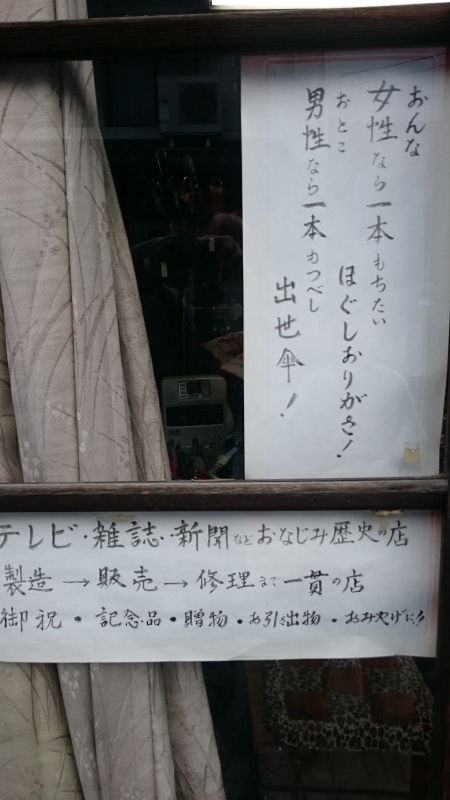 おんな
女性なら一本もちたい
ほぐしおりがさ!
おとこ
男性なら一本もつべし
出世傘!
テレビ・雑誌・新聞などおなじみ歴史の店
製造→販売→修理まで一貫の店
御祝・記念品・贈物・お引き出物・おみやげに!!